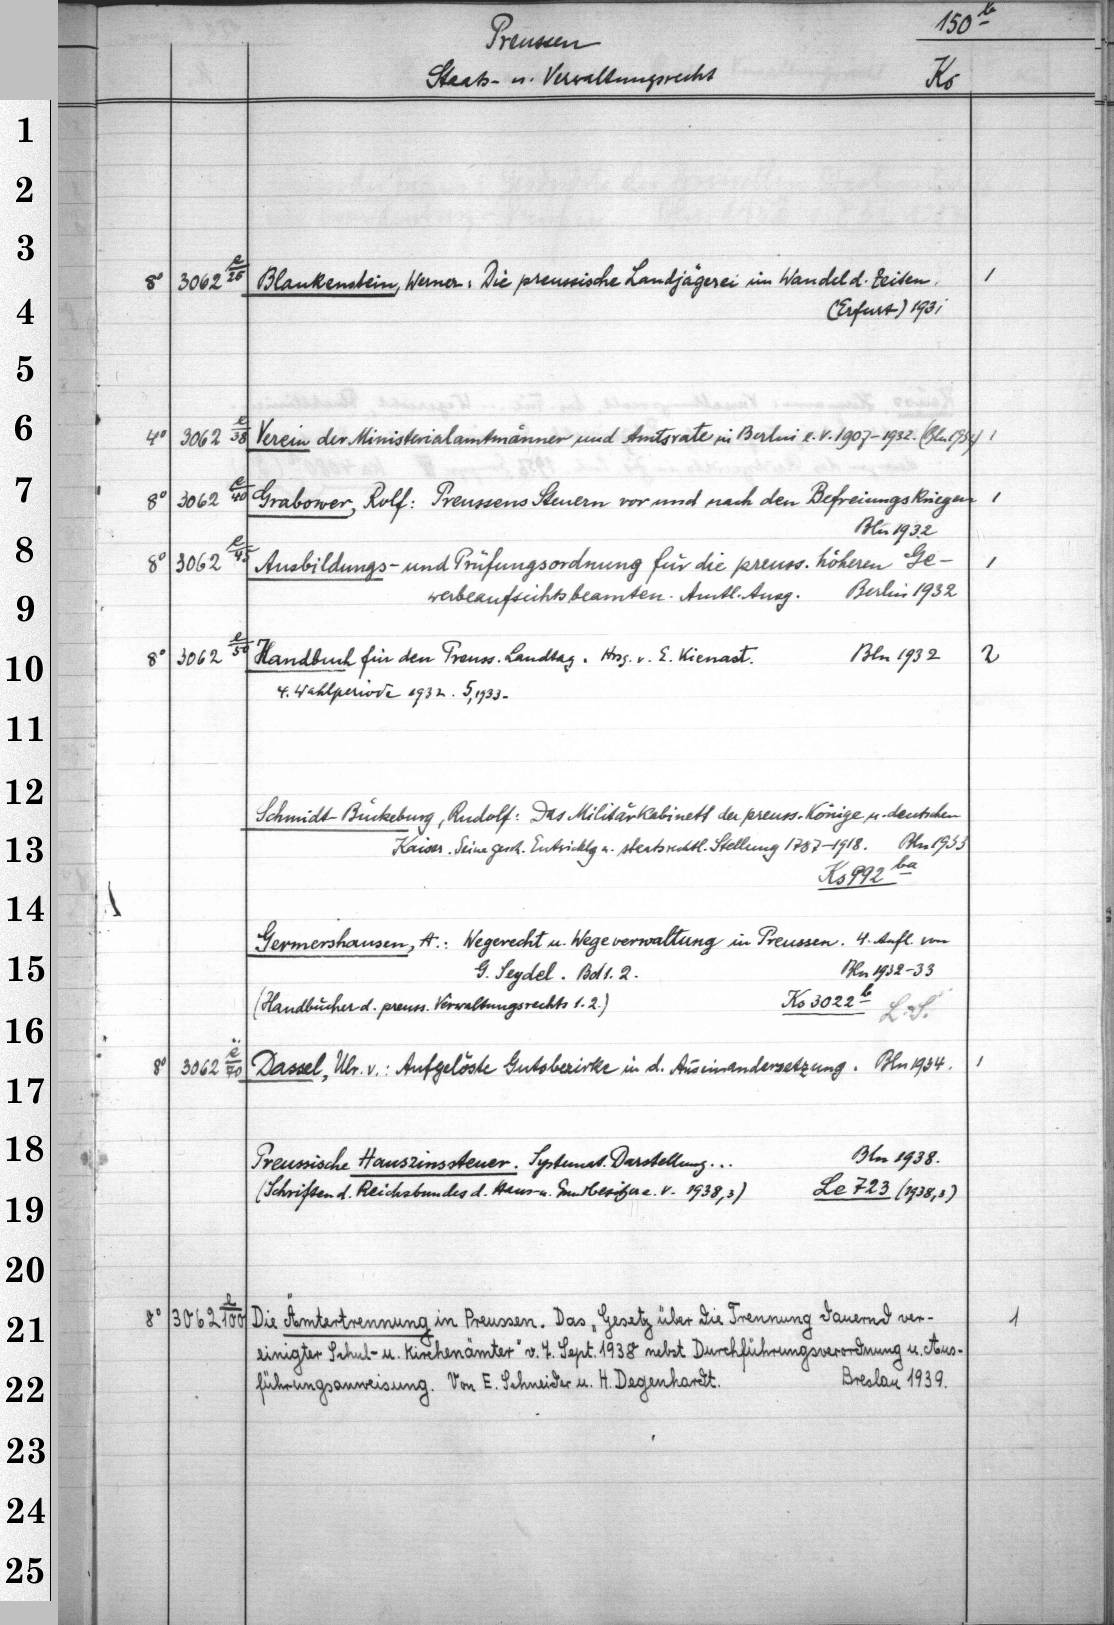 150 b
Preussen
Staats- u. Verwaltungsrecht Ks
1
2
3
8° 3062 e/25 Blankenstein, Werner: Die preussische Landjägerei im Wandel d. Zeiten. 1
4
(Erfurt) 1931
5
6
4° 3062 e/38 Verein der Ministerialamtmänner und Amtsräte in Berlin e.V. 1907-1932. (Bln 1932) 1
7
8° 3062 e/40 Grabower, Rolf: Preussens Steuern vor und nach den Befreiungskriegen 1
Bln 1932
8
8° 3062 e/45 Ausbildungs- und Prüfungsordnung für die preuss. höheren Ge- 1
9
werbeaufsichtsbeamten. Amtl. Ausg. Berlin 1932
10
8° 3062 e/50 Handbuch für den Preuss. Landtag. Hrsg. v. E. Kienast. Bln 1932 2
4. Wahlperiode 1932. 5, 1933-
11
12
Schmidt-Bückeburg, Rudolf: Das Militärkabinett der preuss. Könige u. deutschen
13
Kaiser. Seine gesch. Entwicklg u. staatsrechtl. Stellung 1787-1918. Bln 1933
Ks 992 ba
14
Germershausen, A.: Wegerecht u. Wegeverwaltung in Preussen. 4. Aufl. von
15
G. Seydel. Bd 1. 2. Bln 1932-33
(Handbücher d. preuss. Verwaltungsrechts 1. 2.) Ks 3022 b L.S.
16
8° 3062 e/70 Dassel, Ulr. v.: Aufgelöste Gutsbezirke in d. Auseinandersetzung. Bln 1934. 1
17
18
Preussische Hauszinssteuer. Systemat. Darstellung... Bln 1938.
(Schriften d. Reichsbundes d. Haus- u. Grundbesitzer e.V. 1938,3) Le 723 (1938,3)
19
20
21
8° 3062 e/100 Die Ämtertrennung in Preussen. Das „Gesetz über die Trennung dauernd ver- 1
einigter Schul- u. Kirchenämter" v. 7. Sept. 1938 nebst Durchführungsverordnung u. Aus-
22
führungsanweisung. Von E. Schneider u. H. Degenhardt. Breslau 1939.
23
24
25